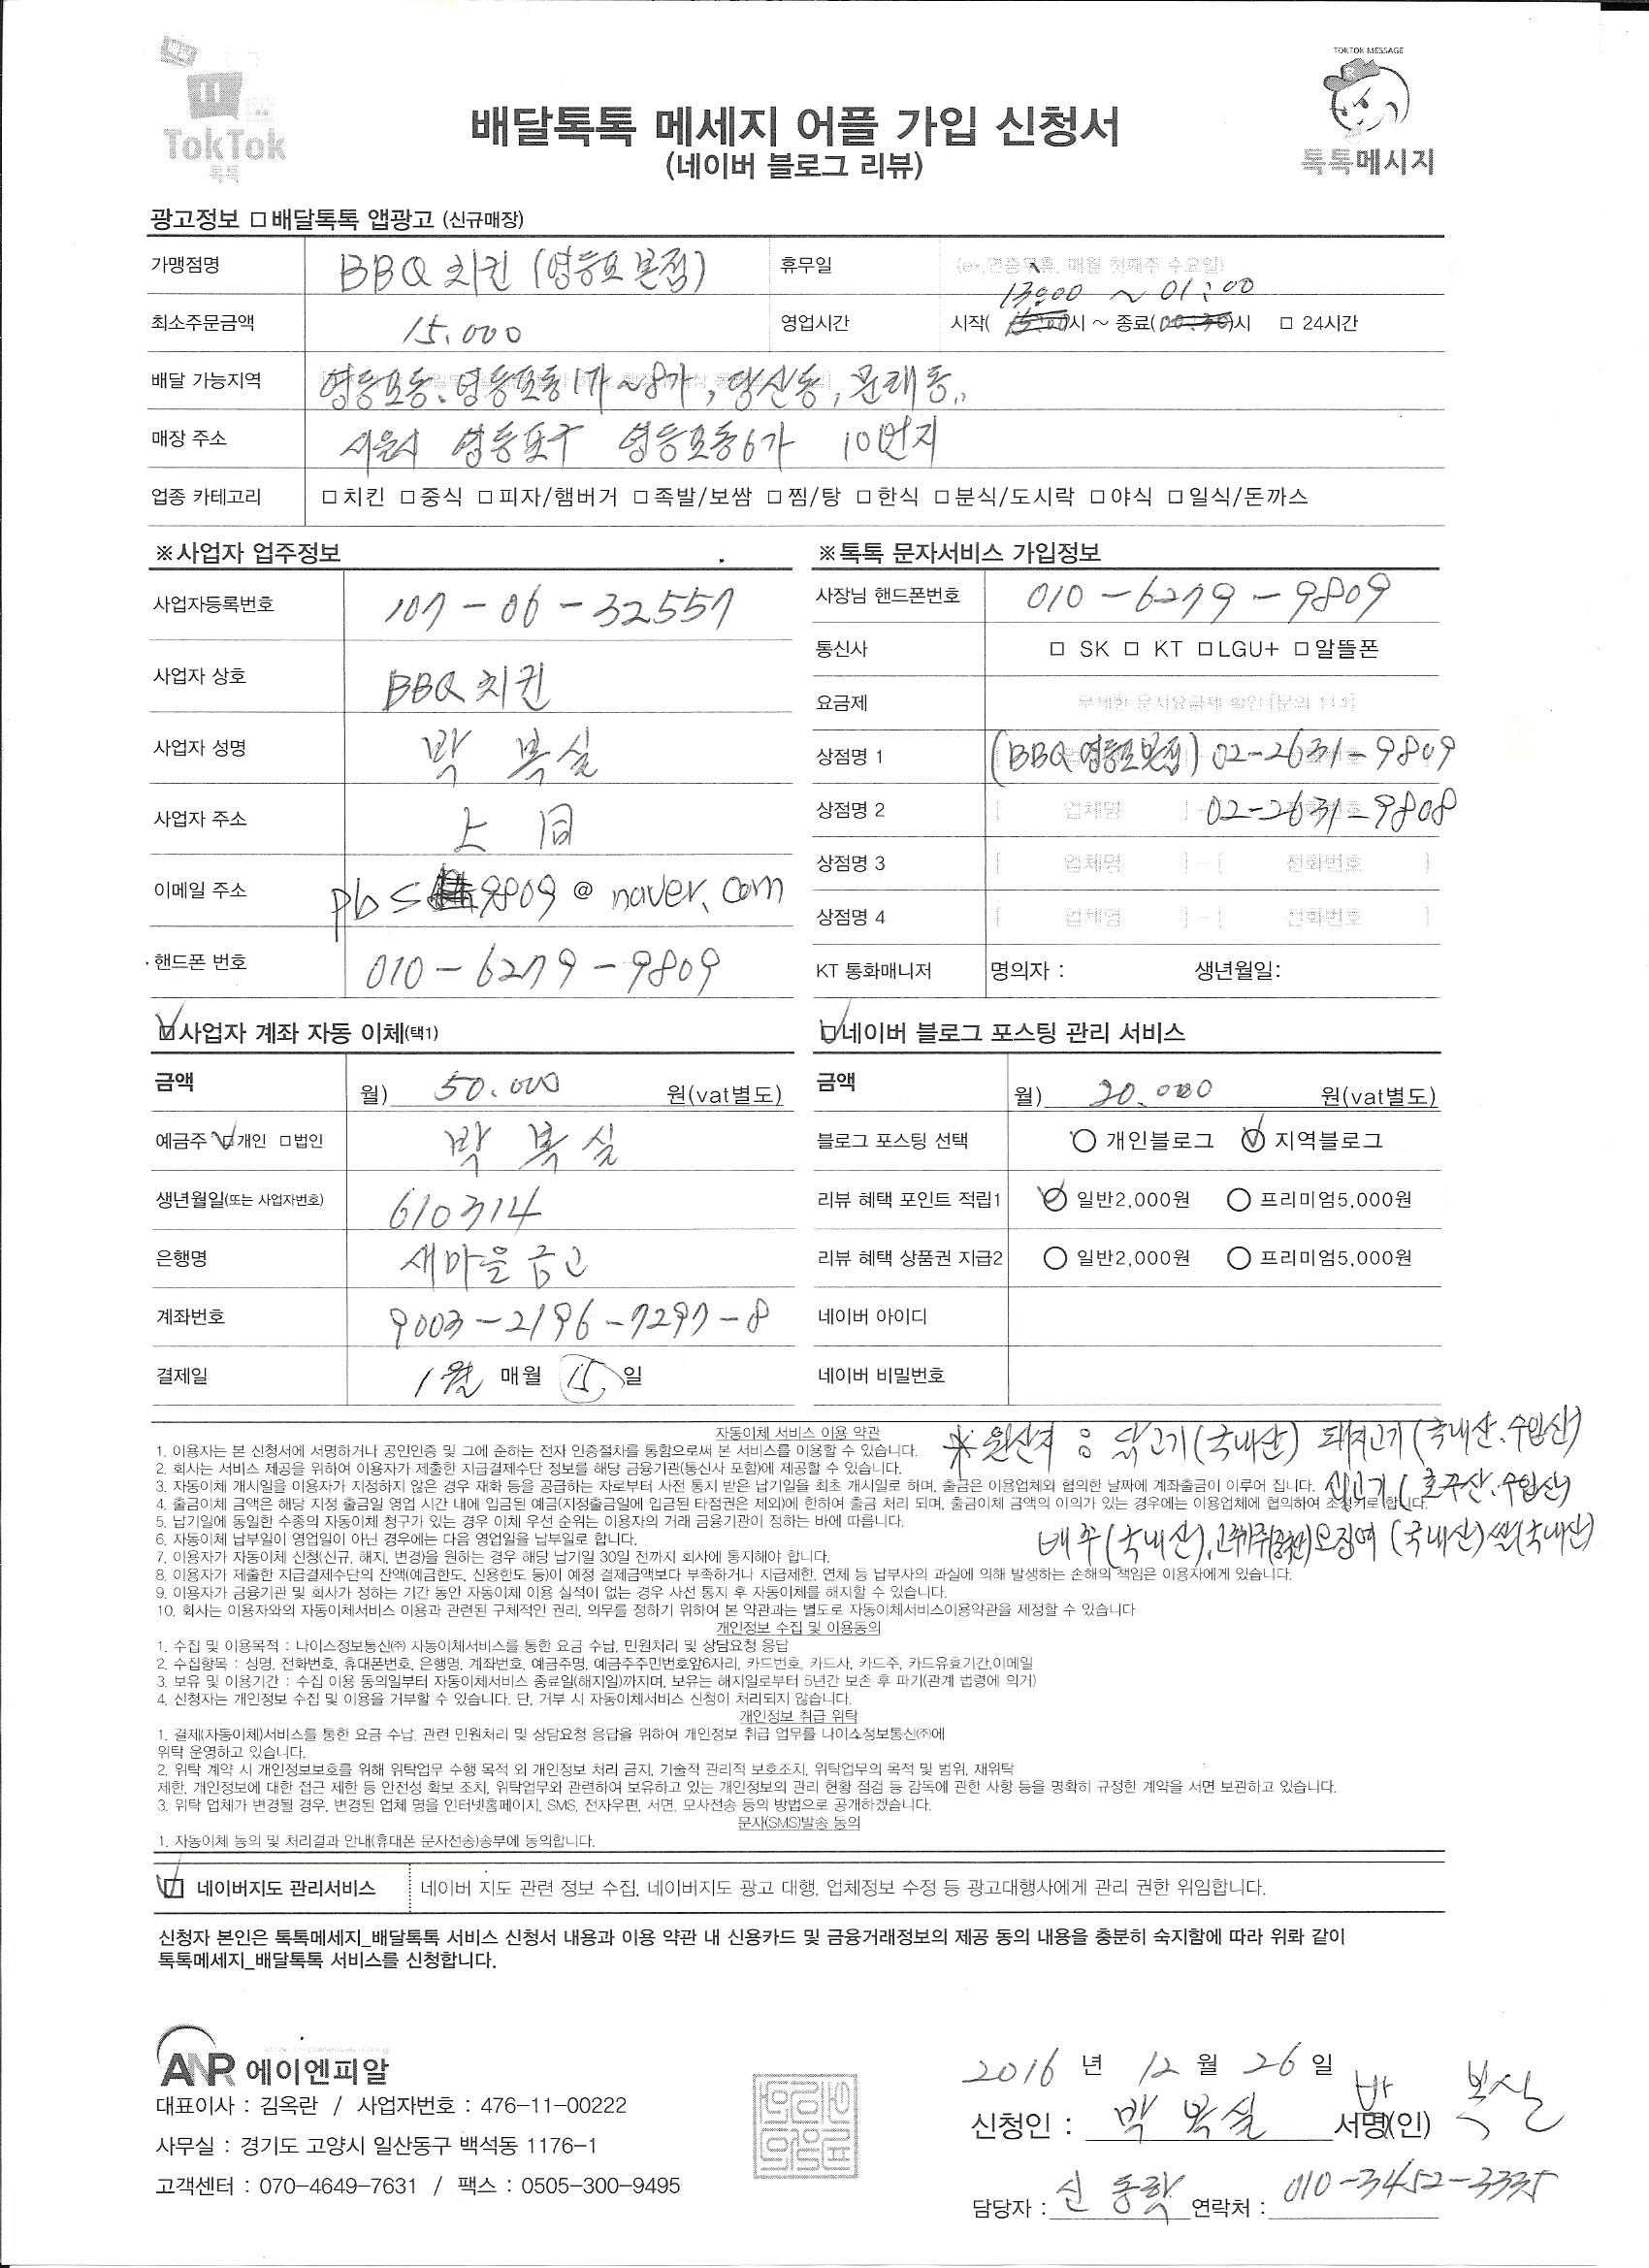 TokTok
톡톡
배달톡톡 메세지 어플 가입 신청서
(네이버 블로그 리뷰)
TOKTOK MESSAGE
톡톡메시지
광고정보 □ 배달톡톡 앱광고 (신규매장)
가맹점명 BBQ 치킨 (영등포 본점) 휴무일 (ex.연중무휴, 매월 첫째주 수요일)
13:00 ~ 01:00
최소주문금액 15,000 영업시간 시작( )시 ~ 종료( )시 □ 24시간
배달 가능지역 영등포동, 영등포동1가~8가, 당산동, 문래동,,
매장 주소 서울시 영등포구 영등포동6가 10번지
업종 카테고리 □ 치킨 □ 중식 □ 피자/햄버거 □ 족발/보쌈 □ 찜/탕 □ 한식 □ 분식/도시락 □ 야식 □ 일식/돈까스
※ 사업자 업주정보
사업자등록번호 107-06-32557
사업자 상호 BBQ 치킨
사업자 성명 박 복실
사업자 주소 上 同
이메일 주소 pbs9809@naver.com
핸드폰 번호 010-6279-9809
※ 톡톡 문자서비스 가입정보
사장님 핸드폰번호 010-6279-9809
통신사 □ SK □ KT □ LGU+ □ 알뜰폰
요금제 무제한 문자요금제 확인 [문의 114]
상점명 1 (BBQ 영등포본점) 02-2631-9809
상점명 2 [ 업체명 ] 02-2631-9808
상점명 3 [ 업체명 ] - [ 전화번호 ]
상점명 4 [ 업체명 ] - [ 전화번호 ]
KT 통화매니저 명의자 : 생년월일:
☑ 사업자 계좌 자동 이체(택1)
금액 월) 50,000 원(vat별도)
예금주 ☑개인 □법인 박 복실
생년월일(또는 사업자번호) 610314
은행명 새마을금고
계좌번호 9003-2196-7297-8
결제일 1월 매월 15 일
☑ 네이버 블로그 포스팅 관리 서비스
금액 월) 20,000 원(vat별도)
블로그 포스팅 선택 ○ 개인블로그 ☑ 지역블로그
리뷰 혜택 포인트 적립1 ☑ 일반2,000원 ○ 프리미엄5,000원
리뷰 혜택 상품권 지급2 ○ 일반2,000원 ○ 프리미엄5,000원
네이버 아이디
네이버 비밀번호
※ 원산지 : 닭고기(국내산) 돼지고기(국내산.수입산)
쇠고기(호주산.수입산)
배추(국내산), 고춧가루(중국산) 오징어 (국내산) 쌀(국내산)
자동이체 서비스 이용 약관
1. 이용자는 본 신청서에 서명하거나 공인인증 및 그에 준하는 전자 인증절차를 통함으로써 본 서비스를 이용할 수 있습니다.
2. 회사는 서비스 제공을 위하여 이용자가 제출한 지급결제수단 정보를 해당 금융기관(통신사 포함)에 제공할 수 있습니다.
3. 자동이체 개시일을 이용자가 지정하지 않은 경우 재화 등을 공급하는 자로부터 사전 통지 받은 납기일을 최초 개시일로 하며, 출금은 이용업체와 협의한 날짜에 계좌출금이 이루어 집니다.
4. 출금이체 금액은 해당 지정 출금일 영업 시간 내에 입금된 예금(지정출금일에 입금된 타점권은 제외)에 한하여 출금 처리 되며, 출금이체 금액의 이의가 있는 경우에는 이용업체에 협의하여 조정키로 합니다.
5. 납기일에 동일한 수종의 자동이체 청구가 있는 경우 이체 우선 순위는 이용자의 거래 금융기관이 정하는 바에 따릅니다.
6. 자동이체 납부일이 영업일이 아닌 경우에는 다음 영업일을 납부일로 합니다.
7. 이용자가 자동이체 신청(신규, 해지, 변경)을 원하는 경우 해당 납기일 30일 전까지 회사에 통지해야 합니다.
8. 이용자가 제출한 지급결제수단의 잔액(예금한도, 신용한도 등)이 예정 결제금액보다 부족하거나 지급제한, 연체 등 납부사의 과실에 의해 발생하는 손해의 책임은 이용자에게 있습니다.
9. 이용자가 금융기관 및 회사가 정하는 기간 동안 자동이체 이용 실적이 없는 경우 사선 통지 후 자동이체를 해지할 수 있습니다.
10. 회사는 이용자와의 자동이체서비스 이용과 관련된 구체적인 권리, 의무를 정하기 위하여 본 약관과는 별도로 자동이체서비스이용약관을 제정할 수 있습니다
개인정보 수집 및 이용동의
1. 수집 및 이용목적 : 나이스정보통신㈜ 자동이체서비스를 통한 요금 수납, 민원처리 및 상담요청 응답
2. 수집항목 : 성명, 전화번호, 휴대폰번호, 은행명, 계좌번호, 예금주명, 예금주주민번호앞6자리, 카드번호, 카드사, 카드주, 카드유효기간,이메일
3. 보유 및 이용기간 : 수집 이용 동의일부터 자동이체서비스 종료일(해지일)까지며, 보유는 해지일로부터 5년간 보존 후 파기(관계 법령에 의거)
4. 신청자는 개인정보 수집 및 이용을 거부할 수 있습니다. 단, 거부 시 자동이체서비스 신청이 처리되지 않습니다.
개인정보 취급 위탁
1. 결제(자동이체)서비스를 통한 요금 수납, 관련 민원처리 및 상담요청 응답을 위하여 개인정보 취급 업무를 나이스정보통신㈜에
위탁 운영하고 있습니다.
2. 위탁 계약 시 개인정보보호를 위해 위탁업무 수행 목적 외 개인정보 처리 금지, 기술적 관리적 보호조치, 위탁업무의 목적 및 범위, 재위탁
제한, 개인정보에 대한 접근 제한 등 안전성 확보 조치, 위탁업무와 관련하여 보유하고 있는 개인정보의 관리 현황 점검 등 감독에 관한 사항 등을 명확히 규정한 계약을 서면 보관하고 있습니다.
3. 위탁 업체가 변경될 경우, 변경된 업체 명을 인터넷홈페이지, SMS, 전자우편, 서면, 모사전송 등의 방법으로 공개하겠습니다.
문자(SMS)발송 동의
1. 자동이체 동의 및 처리결과 안내(휴대폰 문자전송)송부에 동의합니다.
☑ 네이버지도 관리서비스 네이버 지도 관련 정보 수집, 네이버지도 광고 대행, 업체정보 수정 등 광고대행사에게 관리 권한 위임합니다.
신청자 본인은 톡톡메세지_배달톡톡 서비스 신청서 내용과 이용 약관 내 신용카드 및 금융거래정보의 제공 동의 내용을 충분히 숙지함에 따라 위와 같이
톡톡메세지_배달톡톡 서비스를 신청합니다.
ANR 에이엔피알
대표이사 : 김옥란 / 사업자번호 : 476-11-00222
사무실 : 경기도 고양시 일산동구 백석동 1176-1
고객센터 : 070-4649-7631 / 팩스 : 0505-300-9495
2016 년 12 월 26 일
신청인 : 박 복실 서명(인) 박 복실
담당자 : 신동학 연락처 : 010-3452-3335